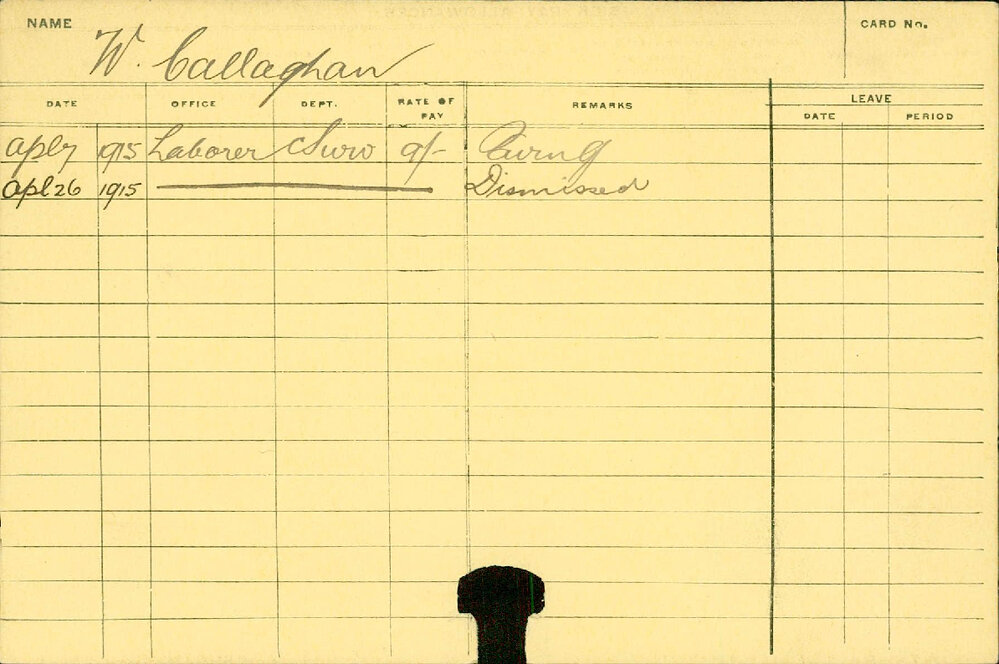 NAME W. Callaghan CARD No.
DATE OFFICE DEPT. RATE OF PAY REMARKS LEAVE
DATE PERIOD
Apl 7 1915 Laborer 9/-
Apl 26 1915 Dismissed